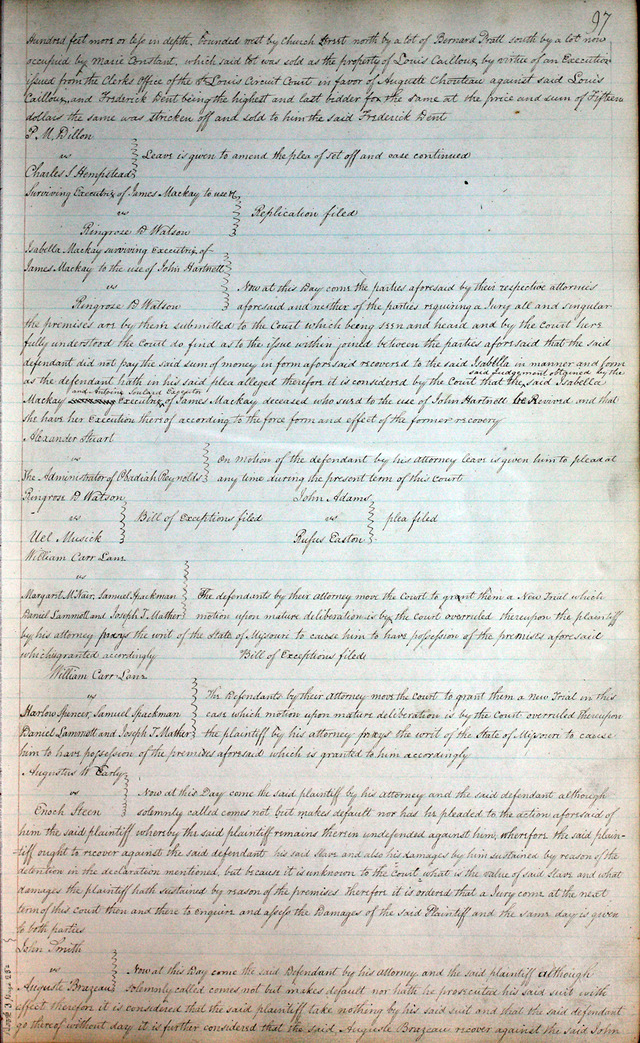 97
Hundred feet more or less in depth. bounded west by Church Street north by a lot of Bernard Pratt south by a lot now
occupied by Marie Constant, which said lot was sold as the property of Louis Cailloux by virtue of an Execution
issued from the Clerks Office of the St. Louis Circuit Court in favor of Auguste Chouteau against said Louis
Cailloux, and Frederick Dent being the highest and last bidder for the same at the price and sum of Fifteen
dollars the same was stricken off and sold to him the said Frederick Dent
P. M. Dillon
vs
Leave is given to amend the plea of set off and case continued
Charles S Hempstead
Surviving Executrix of James Mackay to use &c
vs
Replication filed
Ringrose D Watson
Isabella Mackay surviving Executrix of
James Mackay to the use of John Hartnett
vs
Now at this Day come the parties aforesaid by their respective attornies
Ringrose D Watson
aforesaid and neither of the parties requiring a Jury all and singular
the premises are by them submitted to the Court which being seen and heard and by the court here
fully understood the Court do find as to the issue within joined between the parties aforesaid that the said
defendant did not pay the said sum of money in form aforesaid recovered to the said Isabella in manner and form
as the defendant hath in his said plea alleged therefore it is considered by the Court that the said Judgment obtained by the said Isabella
Mackay and Antoine Soulard Executor Executrix of James Mackay deceased who sued to the use of John Hartnett be Revived and that
she have her Execution thereof according to the force form and effect of the former recovery
Alexander Stuart
vs
On motion of the defendant by his attorney leave is given him to plead at
The Administrator of Obadiah Reynolds
any time during the present term of this court
Ringrose D Watson
vs
Bill of Exceptions filed
Uel Musick
John Adams
vs
plea filed
Rufus Easton
William Carr Lane
vs
Margaret McNair, Samuel Spackman
The defendants by their attorney move the Court to grant them a New Trial which
Daniel Lammott and Joseph T. Mather
motion upon mature deliberation is by the Court overruled thereupon the plaintiff
by his attorney prays the writ of the State of Missouri to cause him to have possession of the premises aforesaid
which is granted accordingly Bill of Exceptions filed
William Carr Lane
vs
The Defendants by their attorney move the Court to grant them a new Trial in this
Harlow Spencer, Samuel Spackman
case which motion upon mature deliberation is by the Court overruled Thereupon
Daniel Lammott and Joseph T. Mather
the plaintiff by his attorney prays the writ of the State of Missouri to cause
him to have possession of the premises aforesaid which is granted to him accordingly
Augustus W Early
vs
Now at this Day come the said plaintiff by his attorney and the said defendant although
Enoch Steen
solemnly called comes not but makes default nor has he pleaded to the action aforesaid of
him the said plaintiff whereby the said plaintiff remains therein undefended against him, wherefore the said plain-
-tiff ought to recover against the said defendant his said slave and also his damages by him sustained by reason of the
detention in the declaration mentioned, but because it is unknown to the Court what is the value of said slave and what
damages the plaintiff hath sustained by reason of the premises therefore it is ordered that a Jury come at the next
term of this court then and there to enquire and assess the Damages of the said Plaintiff and the same day is given
to both parties
John Smith
vs
Now at this Day come the said Defendant by his Attorney and the said plaintiff although
Auguste Brazeau
solemnly called comes not but makes default nor hath he prosecuted his said suit with
effect therefore it is considered that the said plaintiff take nothing by his said suit and that the said defendant
go thereof without day it is further considered that the said Auguste Brazeau recover against the said John